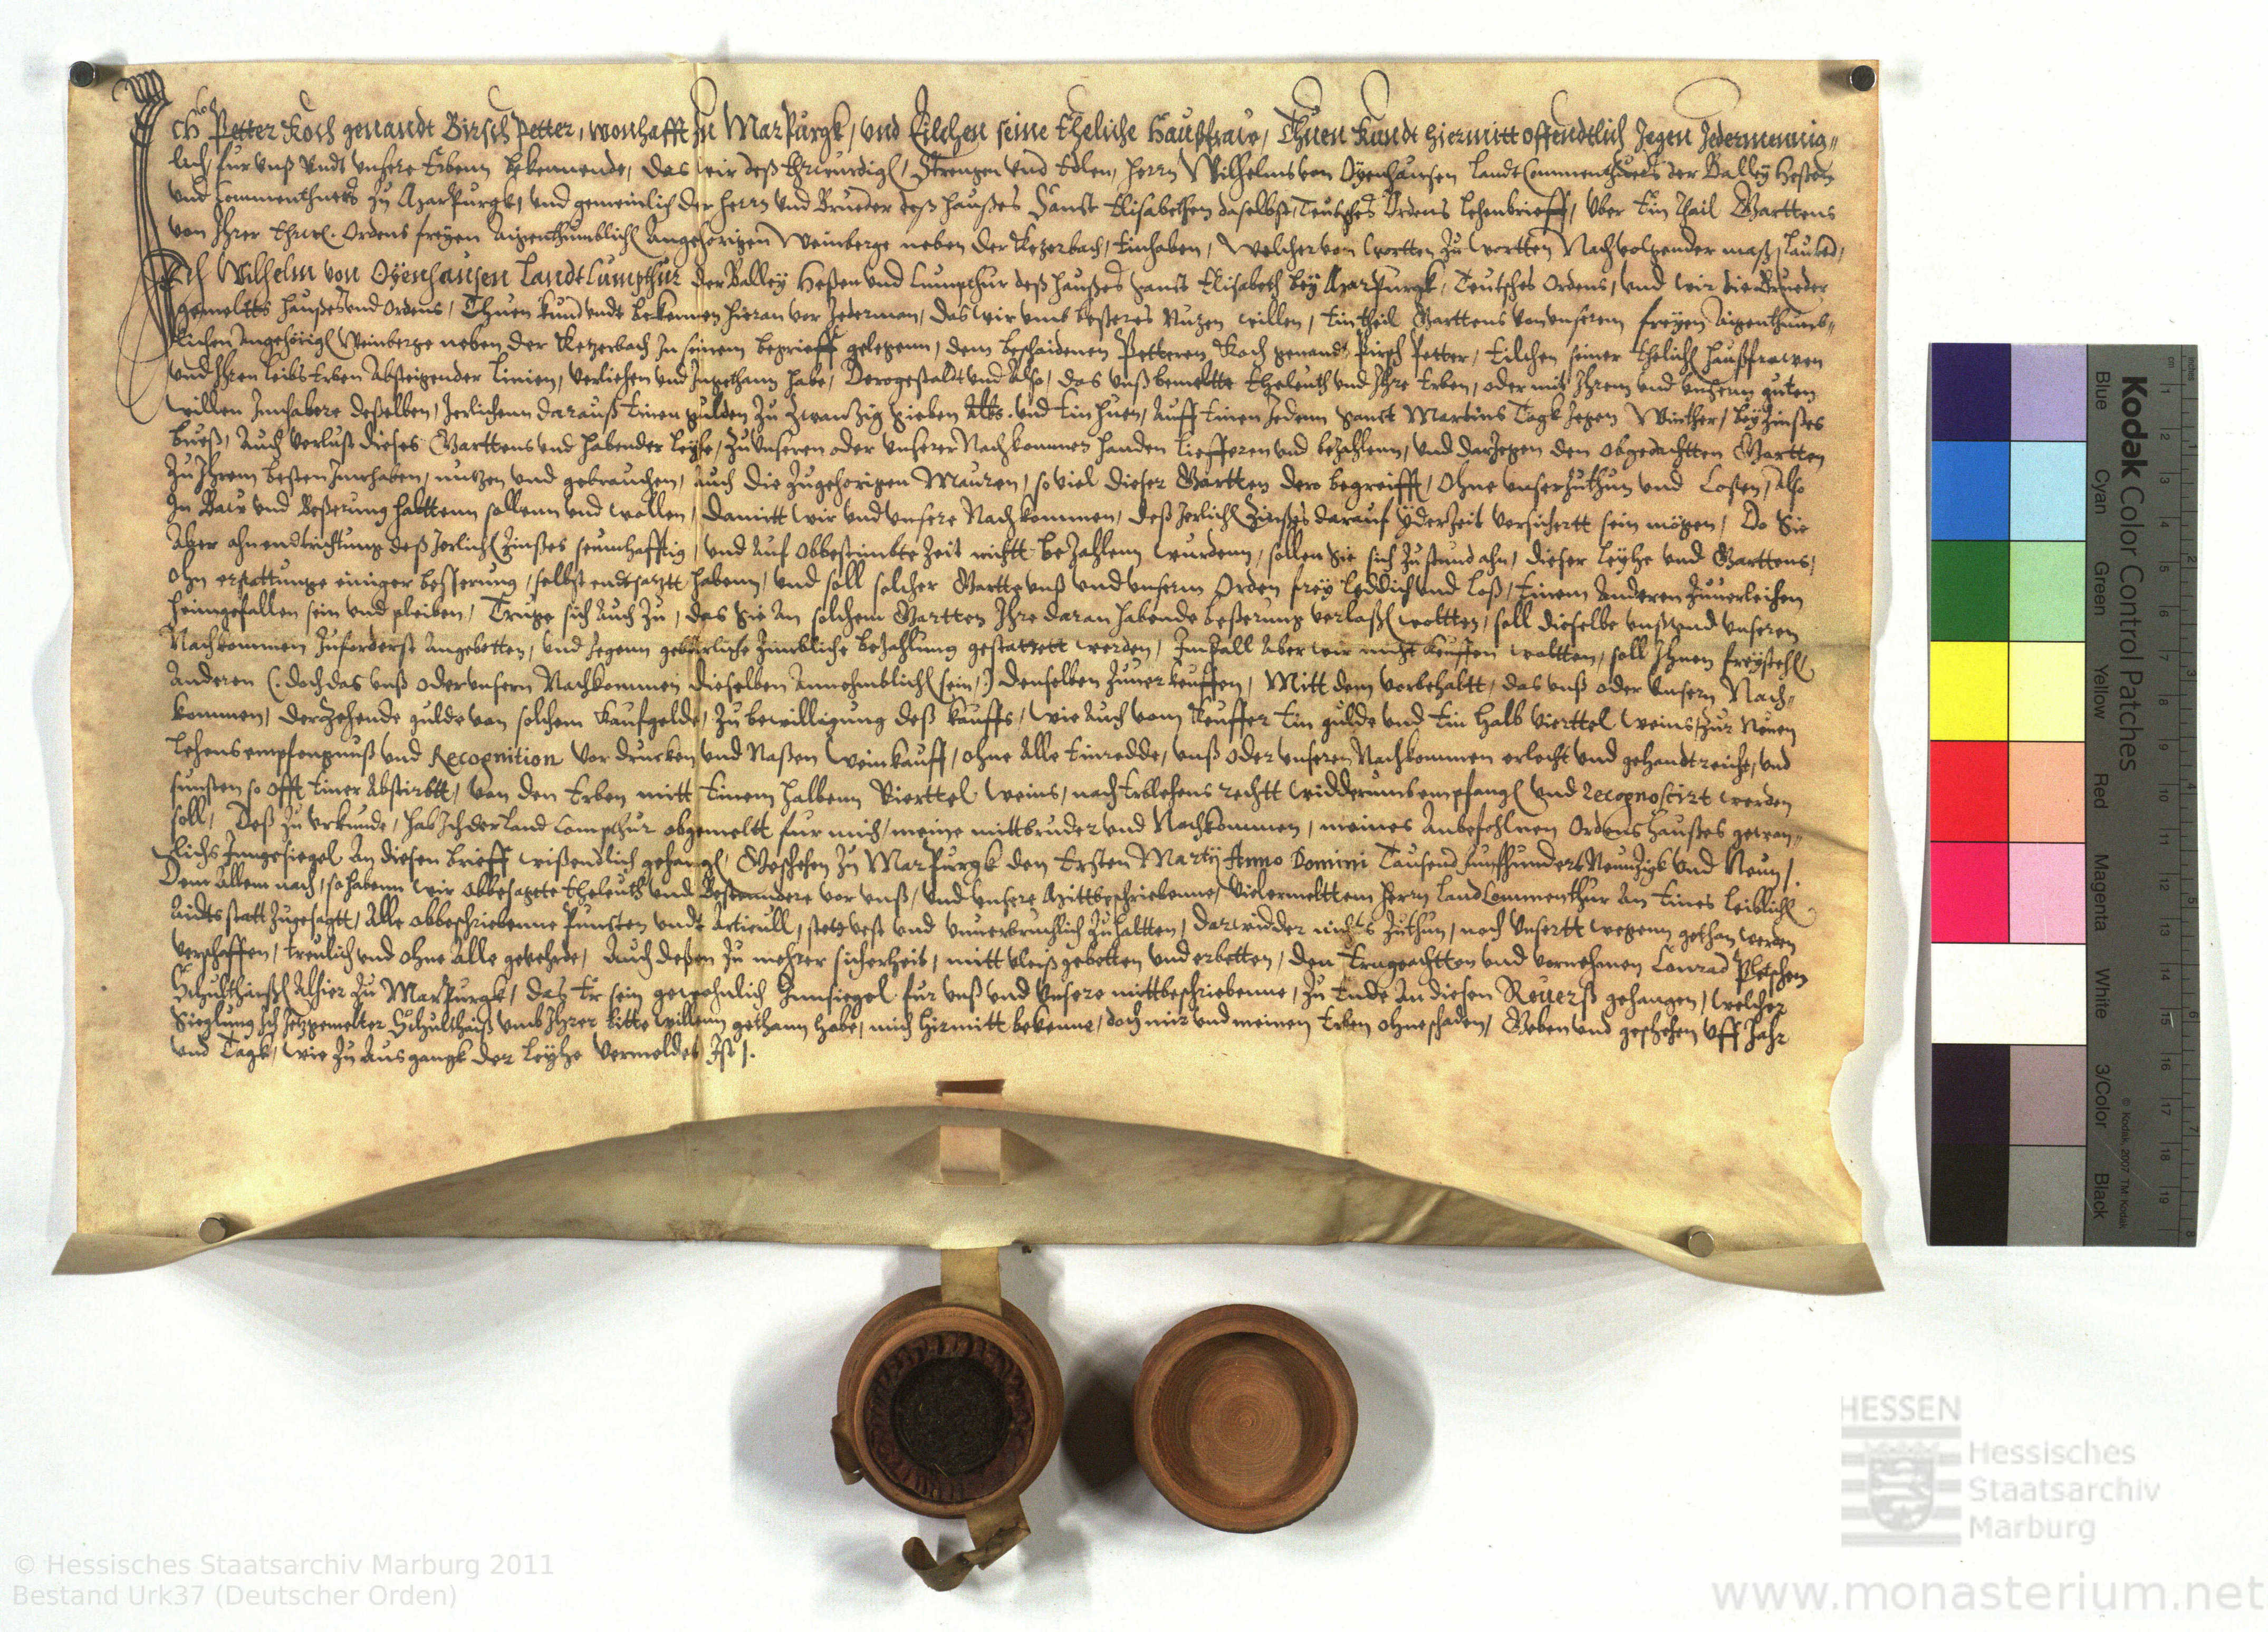 Ich Petter Koch genandt Birsch petter, wonhafft zu Marpurgk, vnd Eilchen seine Eheliche Haußfraw, Thuen kundt hiermitt offendtlich Jegen Jedermennig-
lich fur vnß vndt vnsere Erbenn bekennende, das wir deß Ehrwurdigen, Strengen vnd Edlen, herrn Wilhelms von Oyenhausen Landt Commenthurs der Balley Heßen
vnd Commenthurs zu Marpurgk, vnd gemeinlich der herrn vnd Brueder deß haußes Sanct Elisabethen daselbst, Teutsches Ordens lehenbrieff, vber Ein Thail Garttens
von Ihrer Ehrw. Ordens freyen Aigenthumblichen Angehorigen Weinberge neben der Ketzerbach, Einhaben, welcher von wortten zu wortten Nachvolgender maß, lauted,
Ich Wilhelm von Oyenhausen LandtCumpthur der Balley Heßen vnd Cumpthur deß haußes Sanct Elisabeth bey Marpurgk, Teutsches Ordens, vnd wir die Brueder
gemeltts Haußes vnd Ordens, Thuen kund vndt bekennen hieran vor Jederman, das wir vmb beßeres Nutzen willen, Ein theil Garttens von vnserem freyen Aigenthumb-
lichen Angehorigen Weinberge neben der Ketzerbach In seinem begrieff gelegenn, dem bescheidenen Petteren Koch genandt Pirsch Petter, Eilchen seiner Ehelichen haußfrawen
vnd Ihren leibs Erben Absteigender Linien, verliehen vnd Ingethann habe, Derogestaldt vnd Also, das vnß bemeltte Eheleuth vnd Ihre Erben, oder mit Ihrem vnd vnserm guten
willen Innhabere deßelben, Jerlichenn darauß Einen gulden zu zwantzig sieben Albs. vnd Ein huen, Auff Einen Jedenn Sanct Martins Tagk Jegen Winther, bey Zinßes
bueß, Auch verlust dieses Garttens vnd habender leyhe, zu vnseren oder vnserer Nachkommen handen liefferen vnd bezahlenn, vnd darjegen den obgedachtten Gartten
zu Ihrem besten Innhaben, nutzen vnd gebrauchen, Auch die zugehorigen Mauren, so viel dieser Gartten dero begreifft, ohne vnser zuthun vnd Costen, Also
In Baw vnd Beßerung halttenn sollenn vnd wollen, Damitt wir vnd vnsere Nachkommen, deß Jerlichen Zinßes darauf yderZeit versichertt sein mögen, Do Sie
Aber ahn endtrichtung deß Jerlichen Zinßes seumhafftig, vnd Auf obbestimbte Zeit nichtt bezahlenn wurdenn, sollen Sie sich zustund ahn, dieser leyhe vnd Garttens,
ohn erstattunge einiger beßerung, selbst endtsatztt habenn, vnd soll solcher Gartte vnß vnd vnserm Orden frey leddich vnd loß, Einem Anderen zuuerleihen
heimgefallen sein vnd pleiben, Truge sich Auch zu, das Sie An solchem Gartten Ihre daran habende beßerung verlaßen woltten, soll dieselbe vnß vnd vnseren
Nachkommen zuforderst Angebotten, vnd Jegenn geburliche zimbliche bezahlung gestattett werden, Im fall Aber wir nicht keuffen woltten, soll Ihnen freystehen
Anderen (: doch das vnß oder vnsern Nachkommen dieselben Annehmblich sein :) denselben zuuerkeuffen, Mitt dem vorbehaltt, das vnß oder vnsern Nach-
kommen, der zehende gulde von solchem kaufgelde, zu bewilligung deß kauffs, wie Auch vom keuffer Ein gulde vnd Ein halb vierttel weins, zur Neuen
lehensempfengnuß vnd Recognition vor drucken vnd Naßen weinkauff, ohne Alle Einredde, vnß oder vnseren Nachkommen erlecht vnd gehandtreicht, vnd
sunsten so offt Einer Abstirbtt, von den Erben mitt Einem halbenn Vierttel weins, nach Erblehens rechtt widderumb empfangen vnd recognoscirt werden
soll, Deß zu vrkunde, hab Ich der land Compthur obgemeltt fur mich, meine mittbruder vnd Nachkommen, meines Anbefohlnen Ordens Haußes gewon-
lichs Inngesiegel An diesen brieff wißendlich gehangen, Geschehen zu Marpurgk den Ersten Martij Anno Domini Tausend funffhundert Neuntzigk vnd Neun,
Dem Allem nach, so habenn wir obbesagete Eheleuth vnd Bestendere vor vnß, vnd vnsere Mittbeschriebenne, vielermelttem herrn landCommenthur An Eines leiblichen
Aidts statt zugesagtt, Alle obbeschriebenne Puncten vndt Articull, stett vest vnd vnuerbruchlich zuhaltten, darwidder nichts zuthun, noch vnsertt wegenn gethan werden
verschaffen, treulich vnd ohne Alle gevehrde, Auch deßen zu mehrer sicherheit, mitt vleiß gebetten vnd erbetten, den Ernveachtten vnd vornehmen Conrad Pletschen
Schultheißen Alhier zu Marpurgk, das Er sein gewohnlich Innsiegel fur vnß vnd vnsere mittbeschriebenne, zu Ende An diesen Reuerß gehangen, welcher
Sieglung Ich Jetzgemelter Schultheiß vmb Ihrer bitte willenn gethann habe, mich hirmitt bekenne, doch mir vnd meinen Erben ohne schaden, Geben vnd geschehen vff Jahr
vnd Tagk, wie zu Ausgangk der leyhe vermeldet Ist.
Kodak Color Control Patches
Blue Cyan Green Yellow Red Magenta White 3/Color Black
© Kodak, 2007 TM: Kodak
inches 1 2 3 4 5 6 7 8
cm 1 2 3 4 5 6 7 8 9 10 11 12 13 14 15 16 17 18 19
HESSEN
Hessisches
Staatsarchiv
Marburg
© Hessisches Staatsarchiv Marburg 2011
Bestand Urk37 (Deutscher Orden)
www.monasterium.net